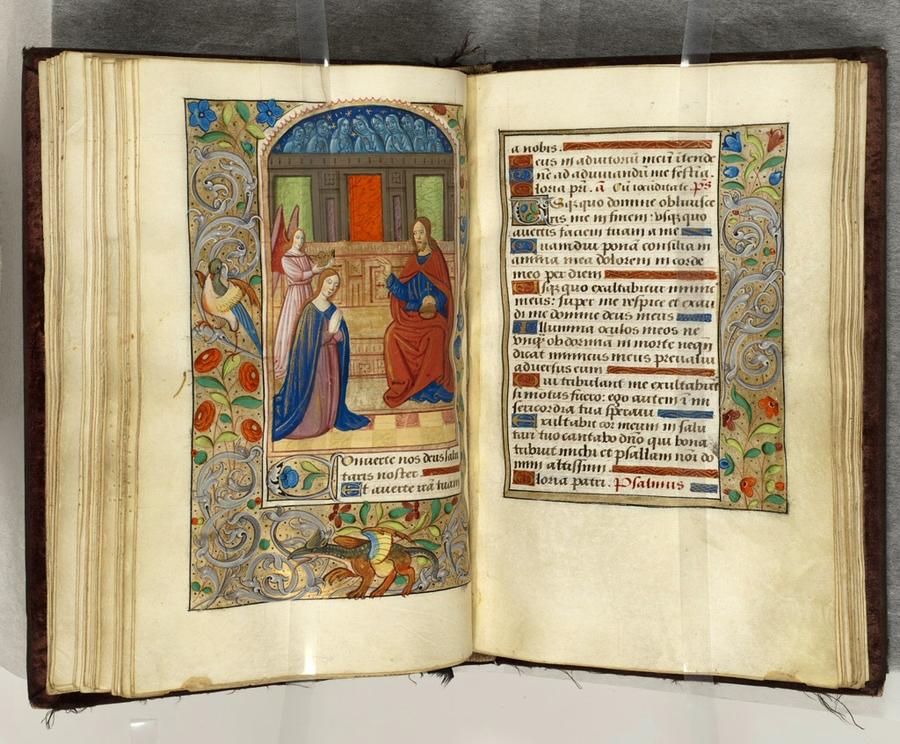 Onuerte nos deus salu
taris noster
Et auerte irā tuam
a nobis.
Deus in adiutoriū meū itende
Dñe ad adiuuandū me festia.
Gloria pri. ā Cū iocūditate. ps
Vsq̄quo domine obliuisce
ris me in finem: vsq̄quo
auertis faciem tuam a me
Quamdiu ponā consilia in
anima mea dolorem in corde
meo per diem
Vsq̄quo exaltabitur inimic
meus: super me respice et exau
di me domine deus meus
Illumina oculos meos ne
vnq̄ obdormiā in morte neq̄n
dicat inimicus meus preualui
aduersus eum
Qui tribulant me exultabūt
si motus fuero: ego autem ī mi
sericordia tua speraui
Exultabit cor meum in salu
tari tuo cantabo dño qui bona
tribuit michi et psallam noī do
mini altissimi.
Gloria patri. Psalmus